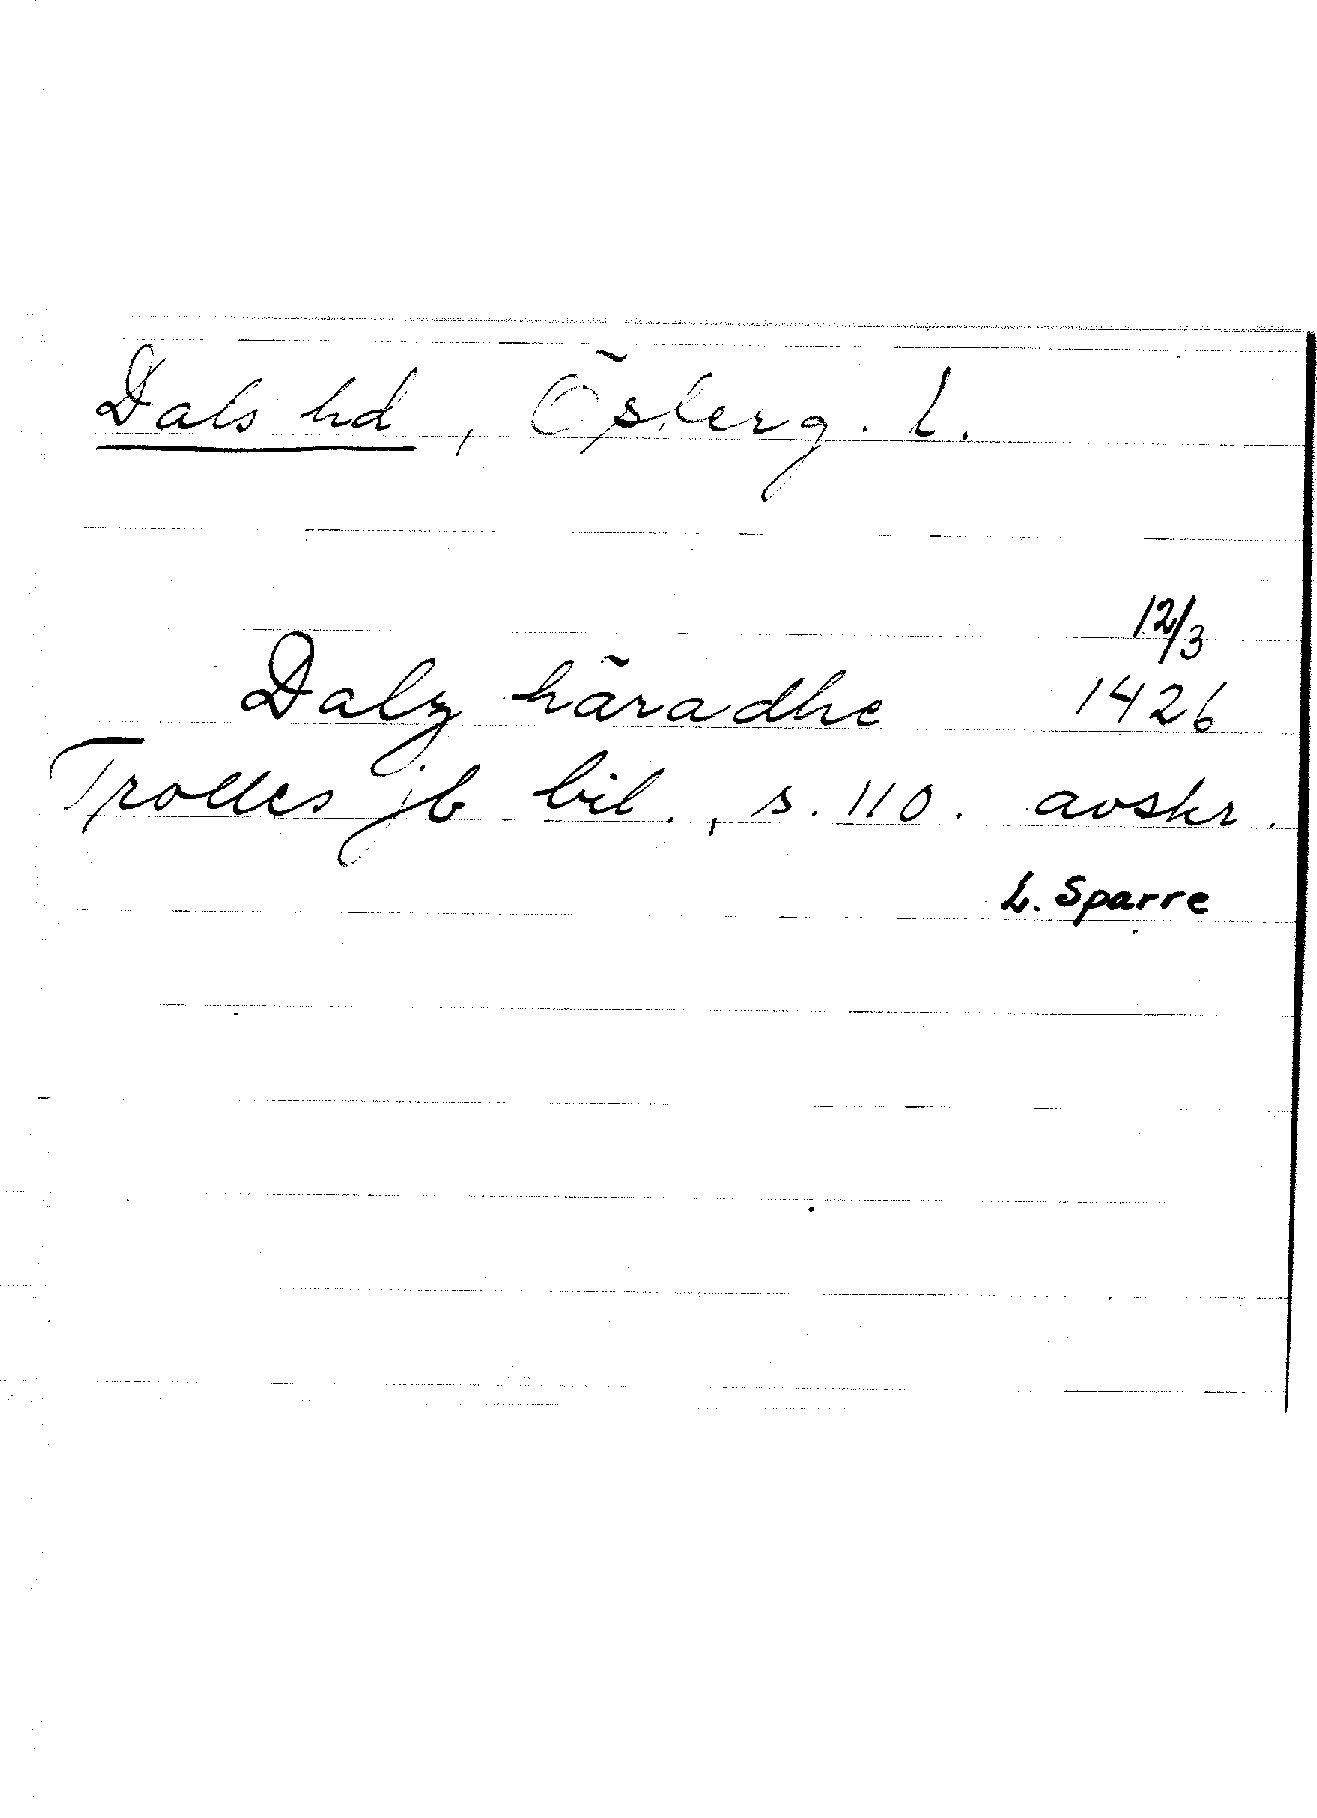 Dals hd, Österg. l.
12/3
Dalz häradhe 1426
Trolles jb bil., s. 110. avskr.
L. Sparre